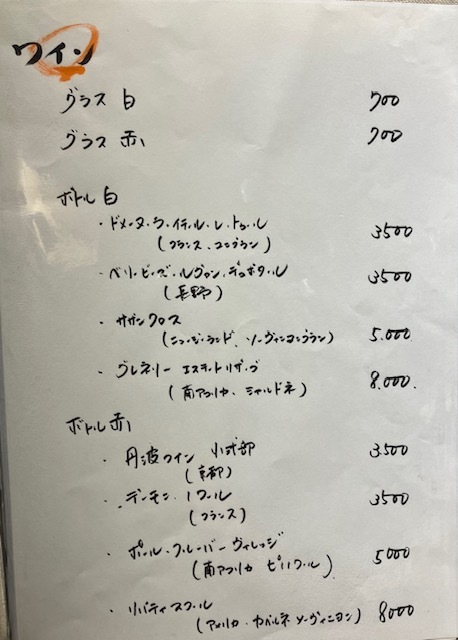 ワイン
グラス 白 700
グラス 赤 700
ボトル 白
・ドメーヌ・ラ・ 3500
(フランス、コロンブラン)
3500
(長野)
・サザンクロス
(ニュージーランド、ソーヴィニヨンブラン) 5.000
・グレネリー エステートリザーブ 8.000.
(南アフリカ、シャルドネ)
ボトル 赤
・丹波ワイン 小式部 3500
(京都)
・デーモン・ノワール 3500
(フランス)
・ポール・クルーバー ヴィレッジ 5000
(南アフリカ ピノノワール)
・リバティスクール
(アメリカ・カベルネソーヴィニヨン) 8000